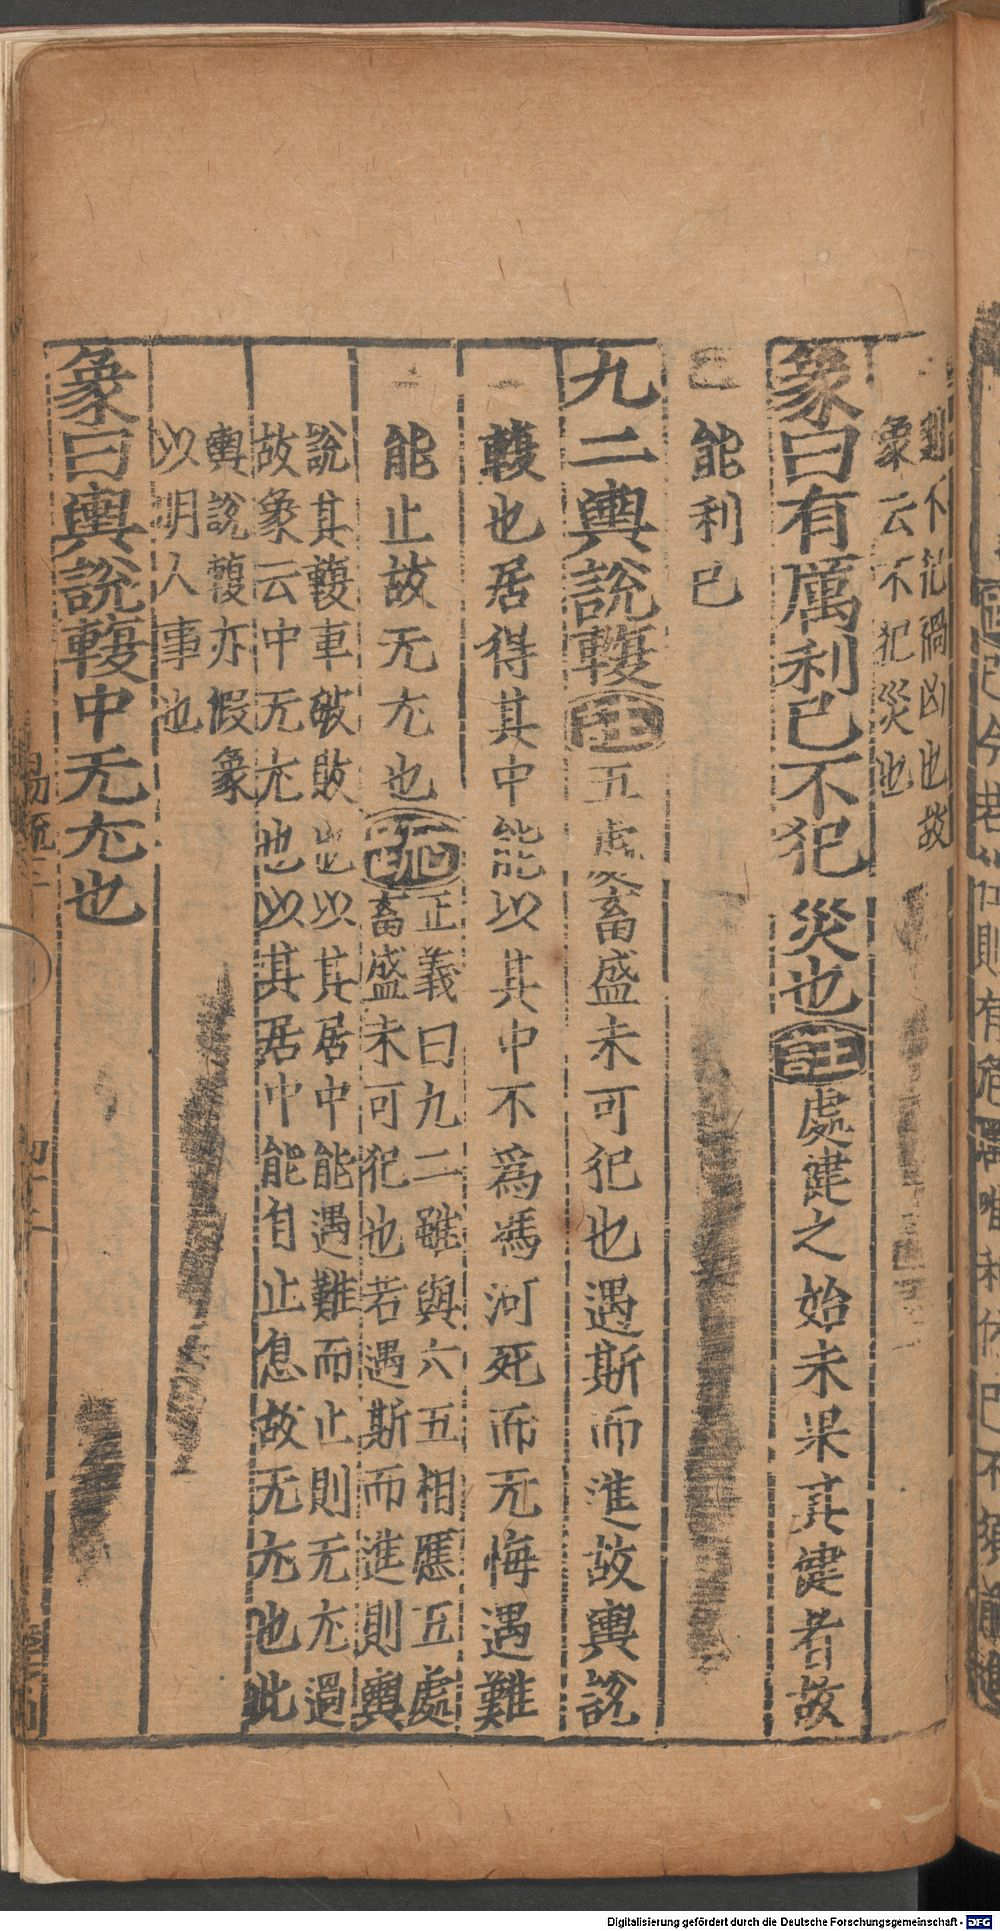 則不犯禍凶也故
象云不犯災也
象曰有厲利已不犯災也註處健之始未果其健者故
能利已
九二輿說輹註五處畜盛未可犯也遇斯而進故輿說
輹也居得其中能以其中不為馮河死而无悔遇難
能止故无尤也疏正義曰九二雖與六五相應五處
畜盛未可犯也若遇斯而進則輿
說其輹車破敗也以其居中能遇難而止則无尤過
故象云中无尤也以其居中能自止息故无尤也此
輿說輹亦假象
以明人事也
象曰輿說輹中无尤也
易疏三
Digitalisierung gefördert durch die Deutsche Forschungsgemeinschaft - DFG